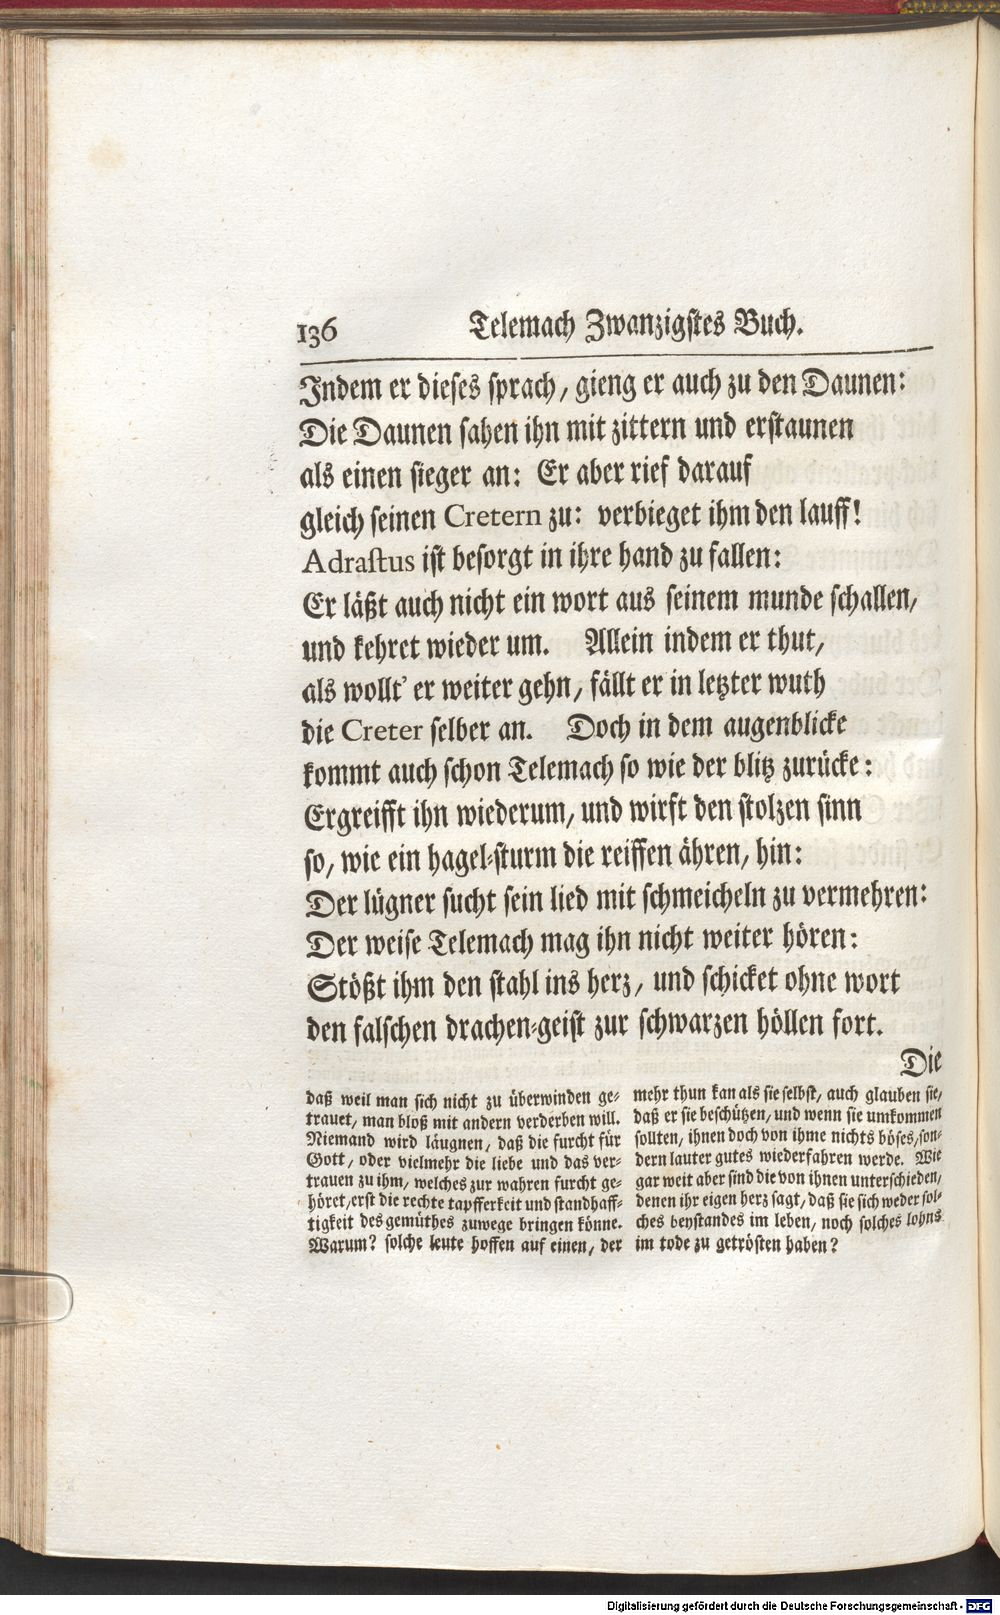 136 Telemach Zwanzigstes Buch.
Indem er dieses sprach, gieng er auch zu den Daunen:
Die Daunen sahen ihn mit zittern und erstaunen
als einen sieger an: Er aber rief darauf
gleich seinen Cretern zu: verbieget ihm den lauff!
Adrastus ist besorgt in ihre hand zu fallen:
Er läßt auch nicht ein wort aus seinem munde schallen,
und kehret wieder um. Allein indem er thut,
als wollt' er weiter gehn, fällt er in letzter wuth
die Creter selber an. Doch in dem augenblicke
kommt auch schon Telemach so wie der blitz zurücke:
Ergreifft ihn wiederum, und wirft den stolzen sinn
so, wie ein hagel-sturm die reiffen ähren, hin:
Der lügner sucht sein lied mit schmeicheln zu vermehren:
Der weise Telemach mag ihn nicht weiter hören:
Stößt ihm den stahl ins herz, und schicket ohne wort
den falschen drachen-geist zur schwarzen höllen fort.
Die
daß weil man sich nicht zu überwinden ge-
trauet, man bloß mit andern verderben will.
Niemand wird läugnen, daß die furcht für
Gott, oder vielmehr die liebe und das ver-
trauen zu ihm, welches zur wahren furcht ge-
höret, erst die rechte tapfferkeit und standhaff-
tigkeit des gemüthes zuwege bringen könne.
Warum? solche leute hoffen auf einen, der
mehr thun kan als sie selbst, auch glauben sie,
daß er sie beschützen, und wenn sie umkommen
sollten, ihnen doch von ihme nichts böses, son-
dern lauter gutes wiederfahren werde. Wie
gar weit aber sind die von ihnen unterschieden,
denen ihr eigen herz sagt, daß sie sich weder sol-
ches beystandes im leben, noch solches lohns
im tode zu getrösten haben?
Digitalisierung gefördert durch die Deutsche Forschungsgemeinschaft - DFG